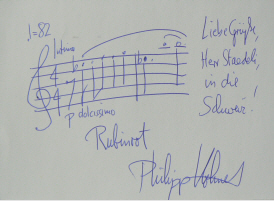 ♩=82
intimo
p dolcissimo
Liebe Grüße,
Herr Staedeli,
in die
Schweiz!
Rubinrot
Philipp